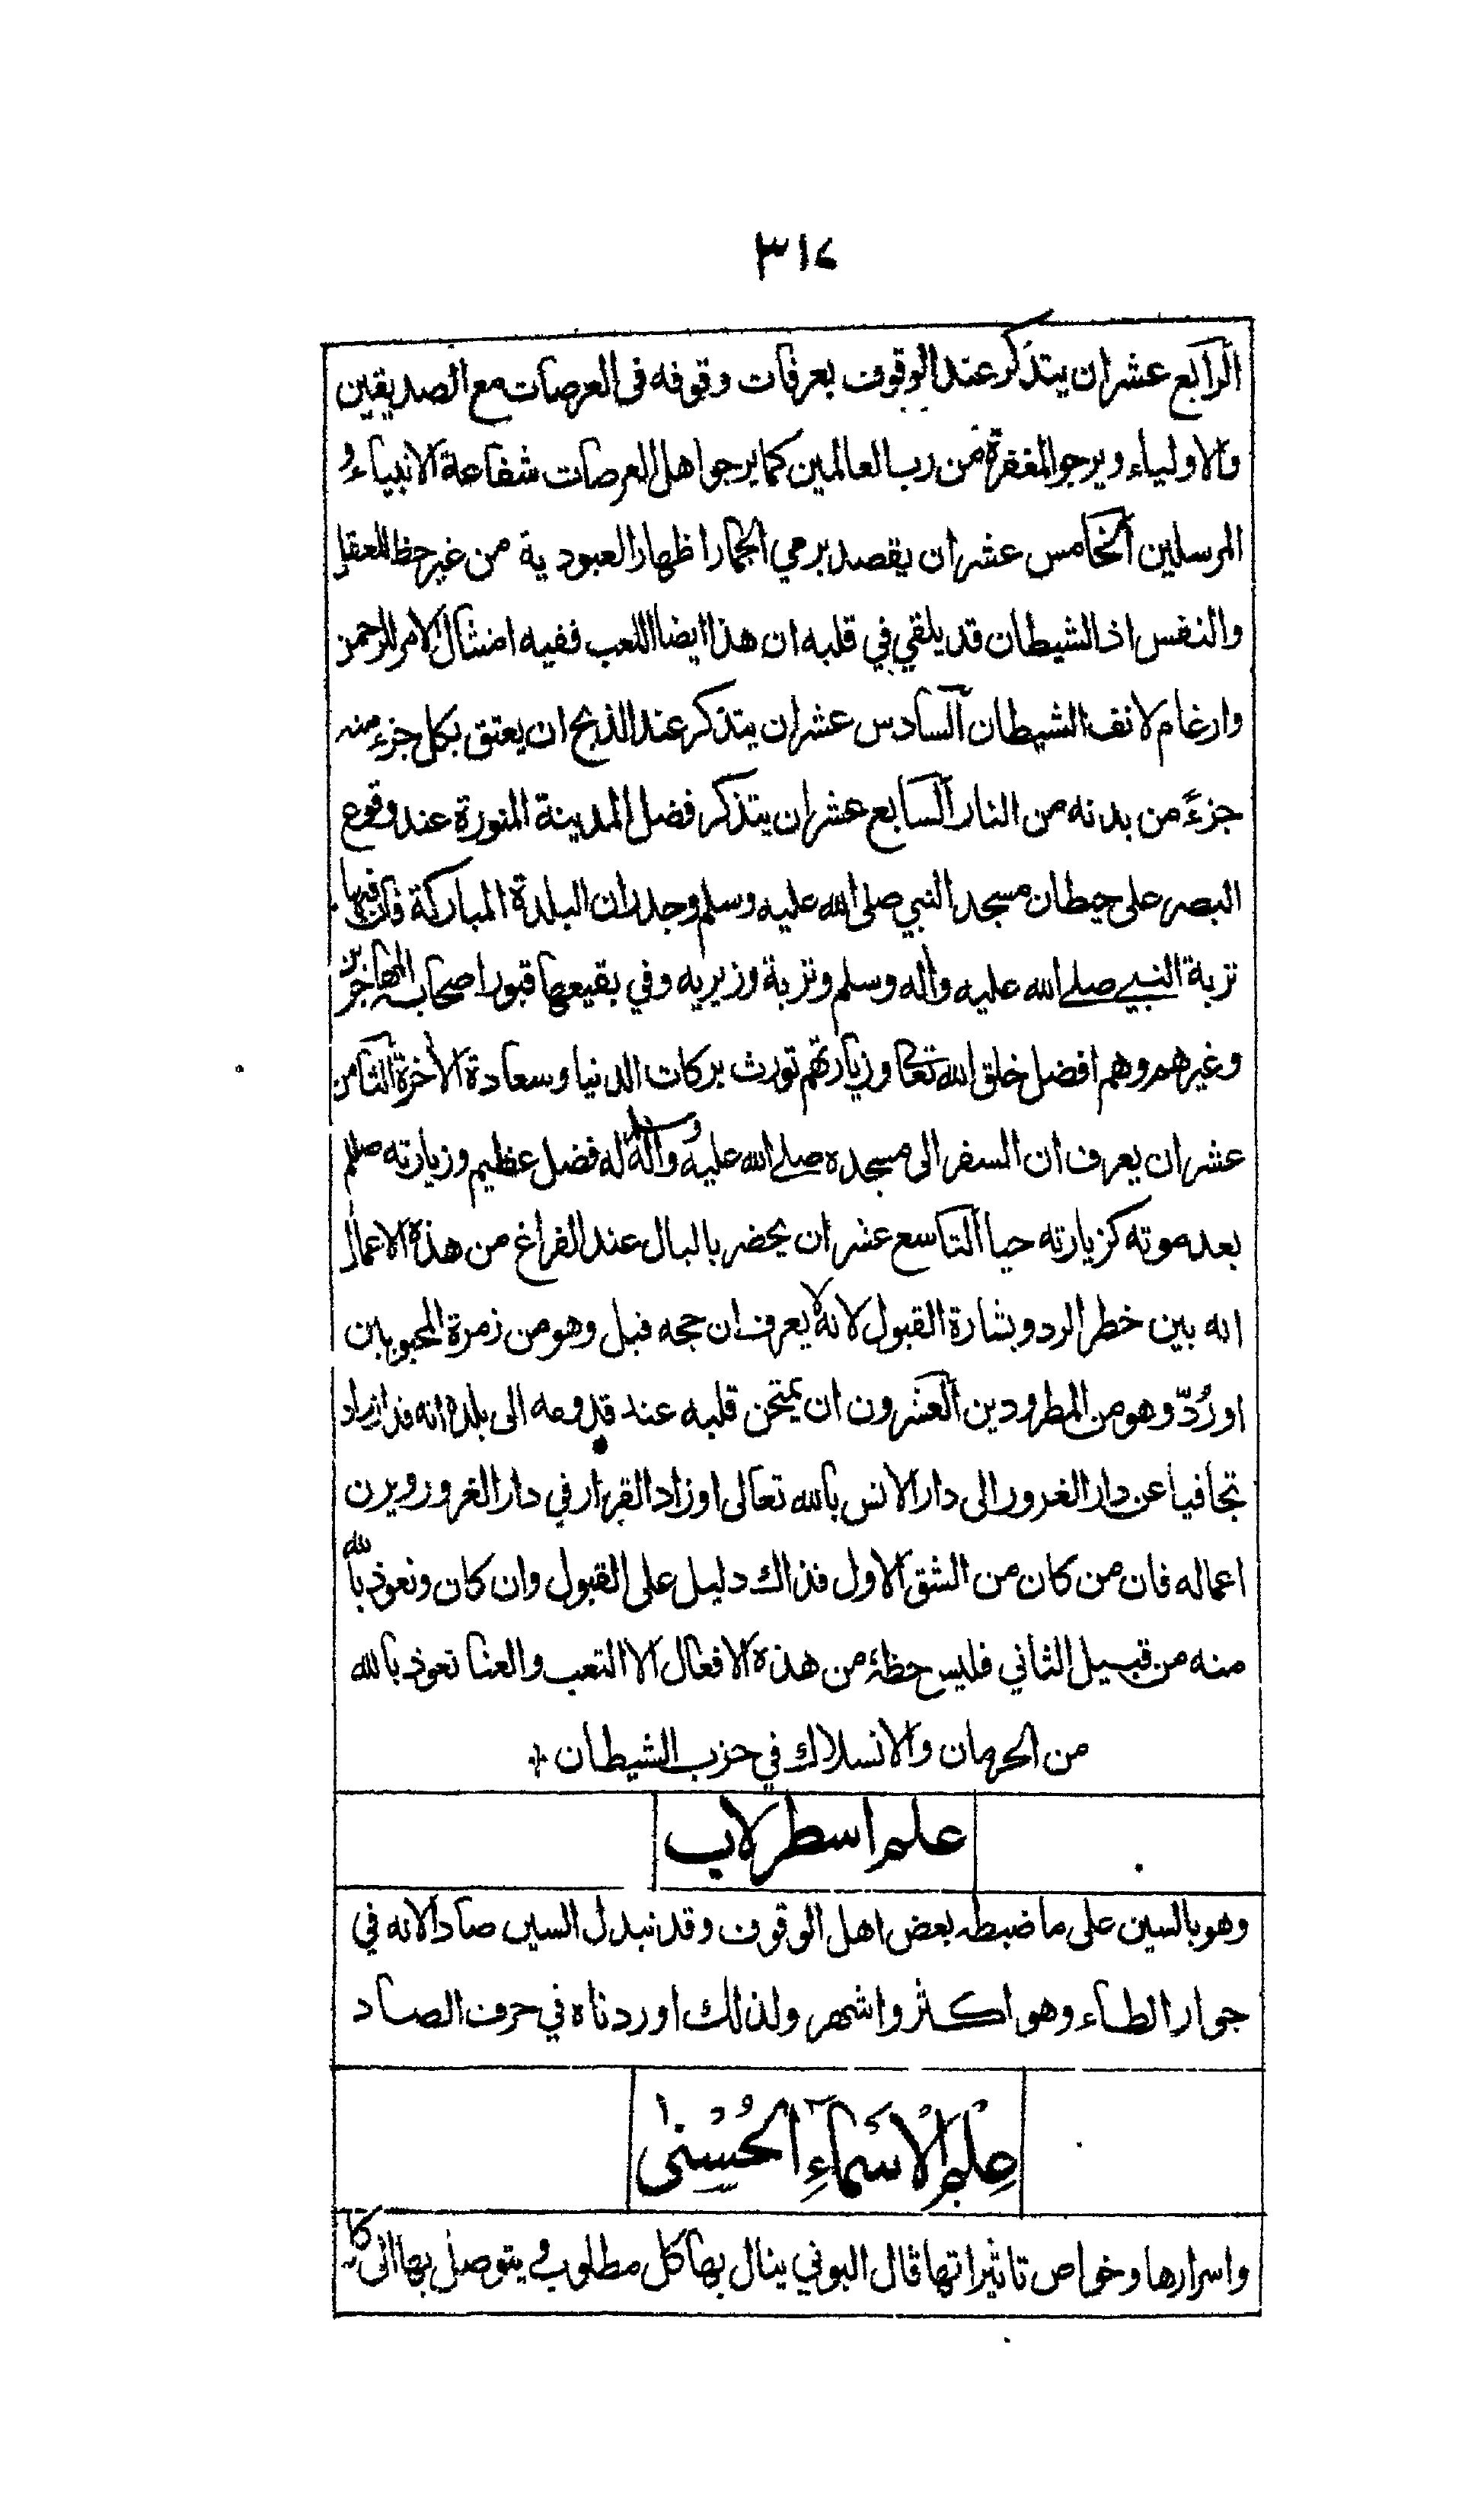 ٣١٤
الرابع عشر ان يتذكر عند الوقوف بعرفات وقوفه فى العرصات مع الصديقين
والاولياء ويرجوالمغفرة من رب العالمين كما يرجواهل العرصات شفاعة الانبياء و
المرسلين الخامس عشر ان يقصد برمي الجمار اظهار العبودية من غير حظ للعقل
والنفس اذ الشيطان قد يلقي في قلبه ان هذا ايضا اللعب ففيه امتثال الامر للرحمن
وارغام لانف الشيطان السادس عشر ان يتذكر عند الذبح ان يعتق بكل جزء منه
جزءً من بدنه من النار السابع عشر ان يتذكر فضل المدينة المنورة عند وقوع
البصر على حيطان مسجد النبي صلى الله عليه وسلم وجدران البلدة المباركة فان فيها
تربة النبي صلے الله عليه واله وسلم وتربة وزيريه وفي بقيعها قبور اصحابه المهاجرين
وغيرهم وهم افضل خلق الله تعالى وزيارتهم تورث بركات الدنيا وسعادة الأخرة الثامن
عشر ان يعرف ان السفر الى مسجده صلے الله عليه واله وسلم له فضل عظيم وزيارته صللم
بعد موته كزيارته حيا التاسع عشر ان يحضر بالبال عند الفراغ من هذه الاعمال
انه بين خطر الرد وبشارة القبول لانه لا يعرف ان حجه قبل وهو من زمرة المحبوبين
او رُدّ وهو من المطرودين العشرون ان يمتحن قلبه عند قدومه الى بلده انه قد ازداد
تجافيا عن دار الغرور الى دار الانس بالله تعالى او زاد القرار في دار الغرور ويرن
اعماله فان من كان من الشق الاول فذالك دليل على القبول وان كان ونعوذ بالله
منه من قبيل الثاني فليس حظهٔ من هذه الافعال الا التعب والعنا نعوذ بالله
من الحرمان والانسلاك في حزب الشيطان +
علم اسطرلاب
وهو بالسين على ما ضبطه بعض اهل الوقوف وقد نبدل السين صادا لانه في
جوار الطاء وهو اكثر واشهر ولذلك اوردناه في حرف الصاد
عِلْمُ الْاَسْمَآءِ الحُسْنٰى
واسرارها وخواص تاثيراتها قال البوني ينال بها كل مطلوب ويتوصل بها الى كل